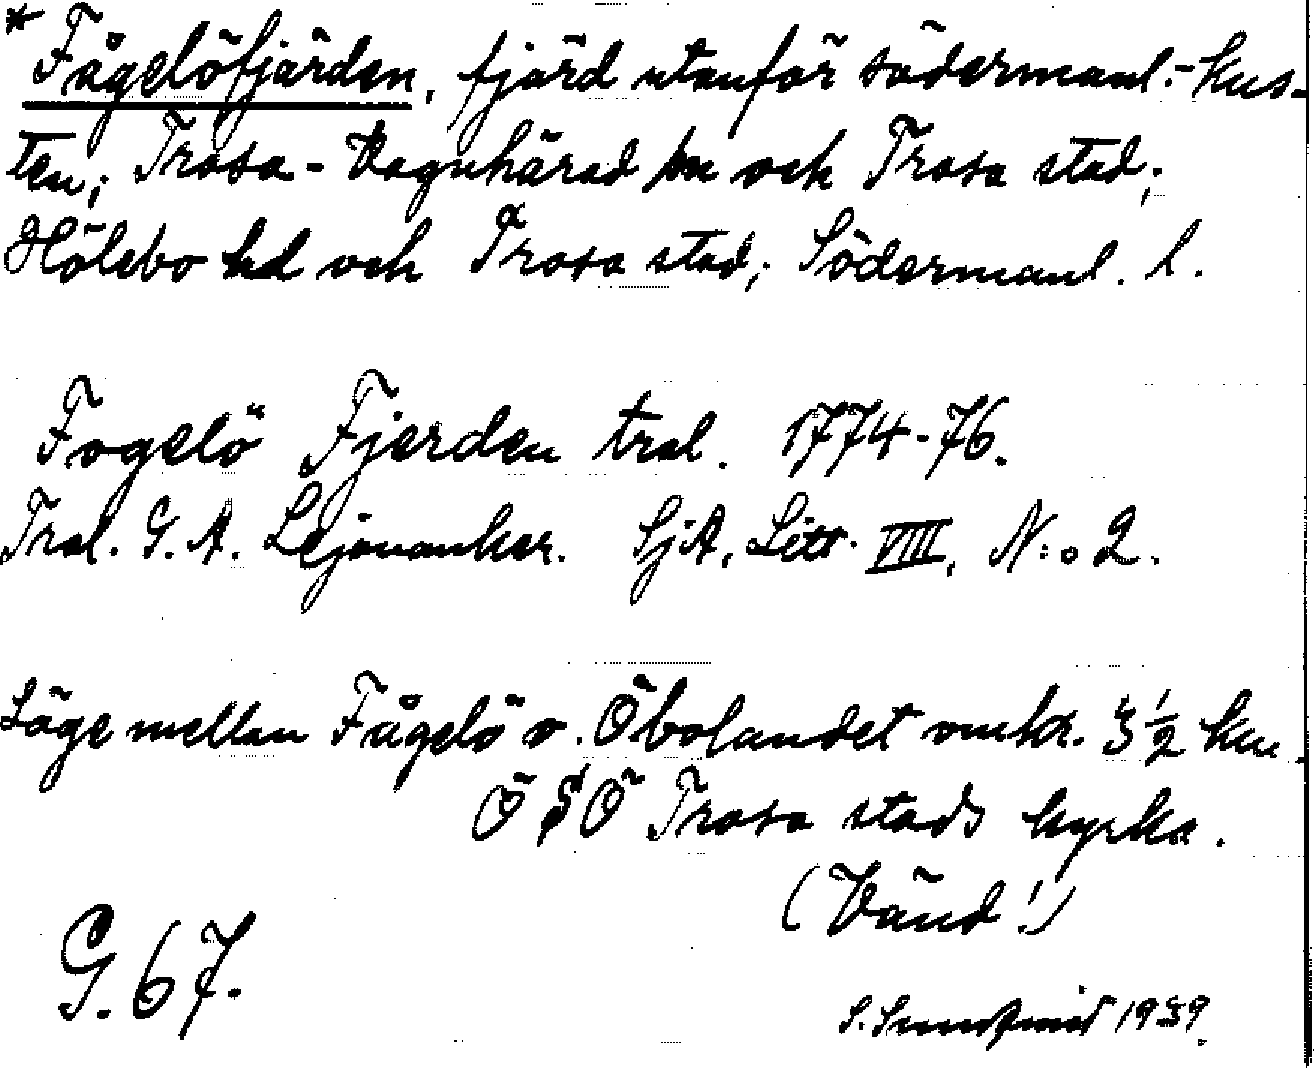 * Fågelöfjärden, fjärd utanför södermanl.-kus-
ten; Trosa-Vagnhärad sn och Trosa stad;
Hölebo hd och Trosa stad; Södermanl. l.
Fogelö Fjerden tral. 1774-76.
Tral. G. A. Lejonanker. SjA, Litt. VIII, N:o 2.
Läge mellan Fågelö o. Öbolandet omkr. 3 1/2 km.
Ö S Ö Trosa stads kyrka.
(Vänd!)
G. 67.
S. Sundqvist 1939.